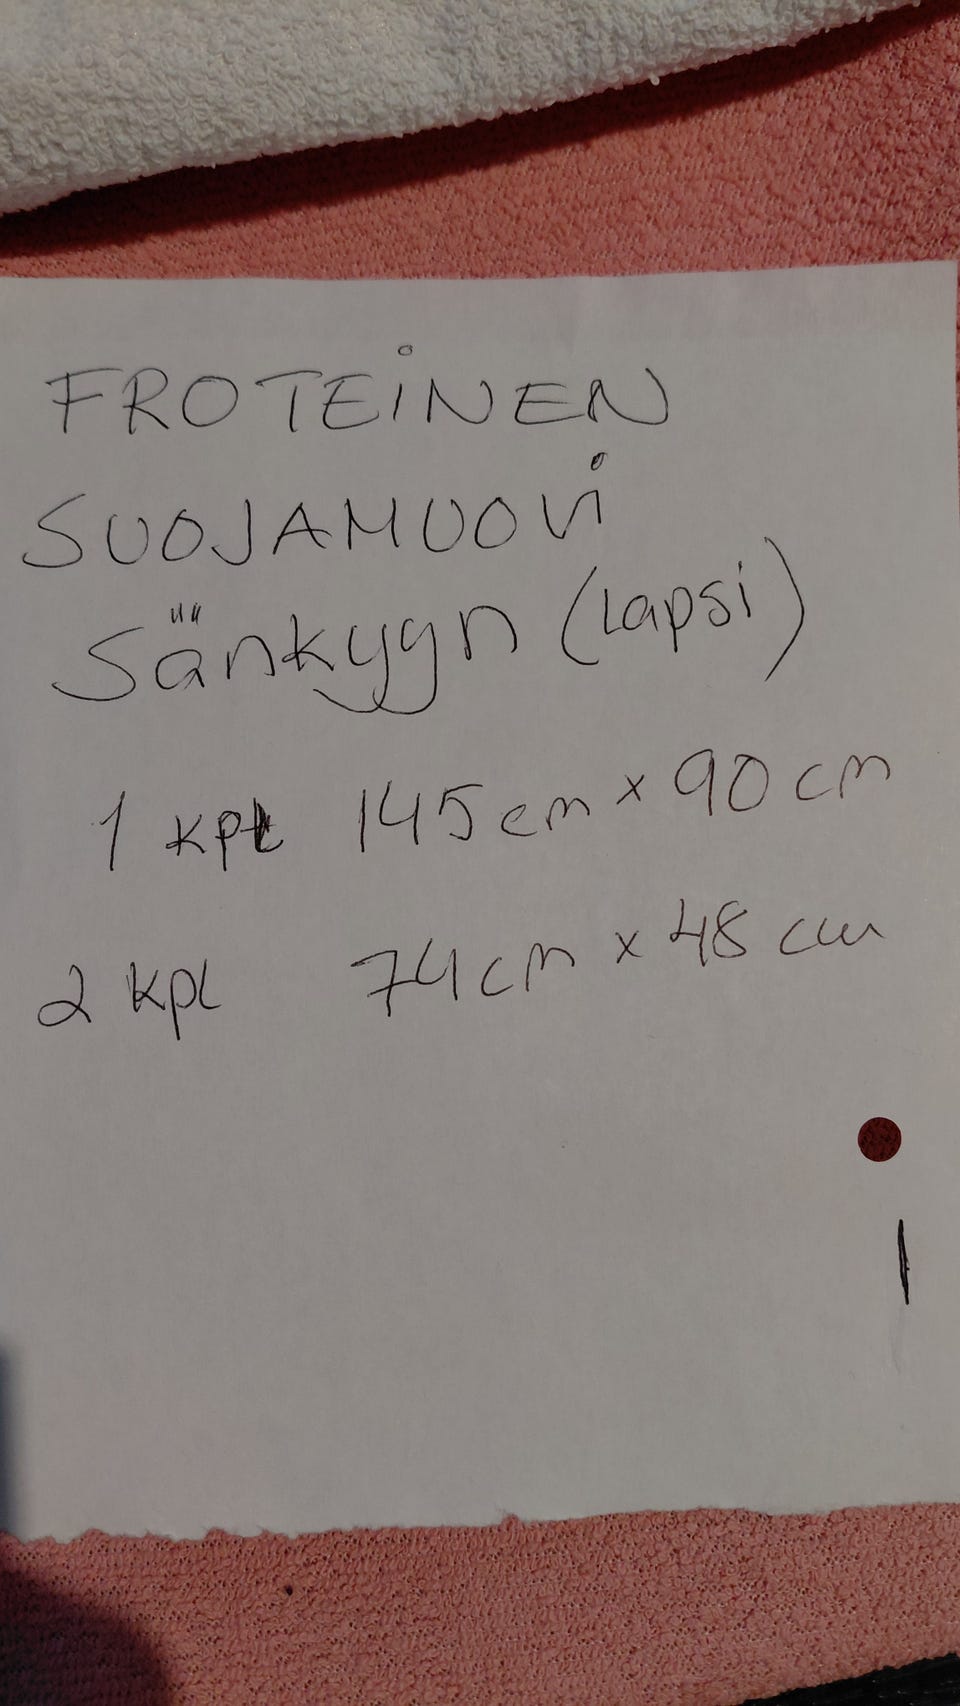 FROTEINEN
SUOJAMUOVI
Sänkyyn (lapsi)
1 kpl 145 cm x 90 cm
2 kpl 74 cm x 48 cm